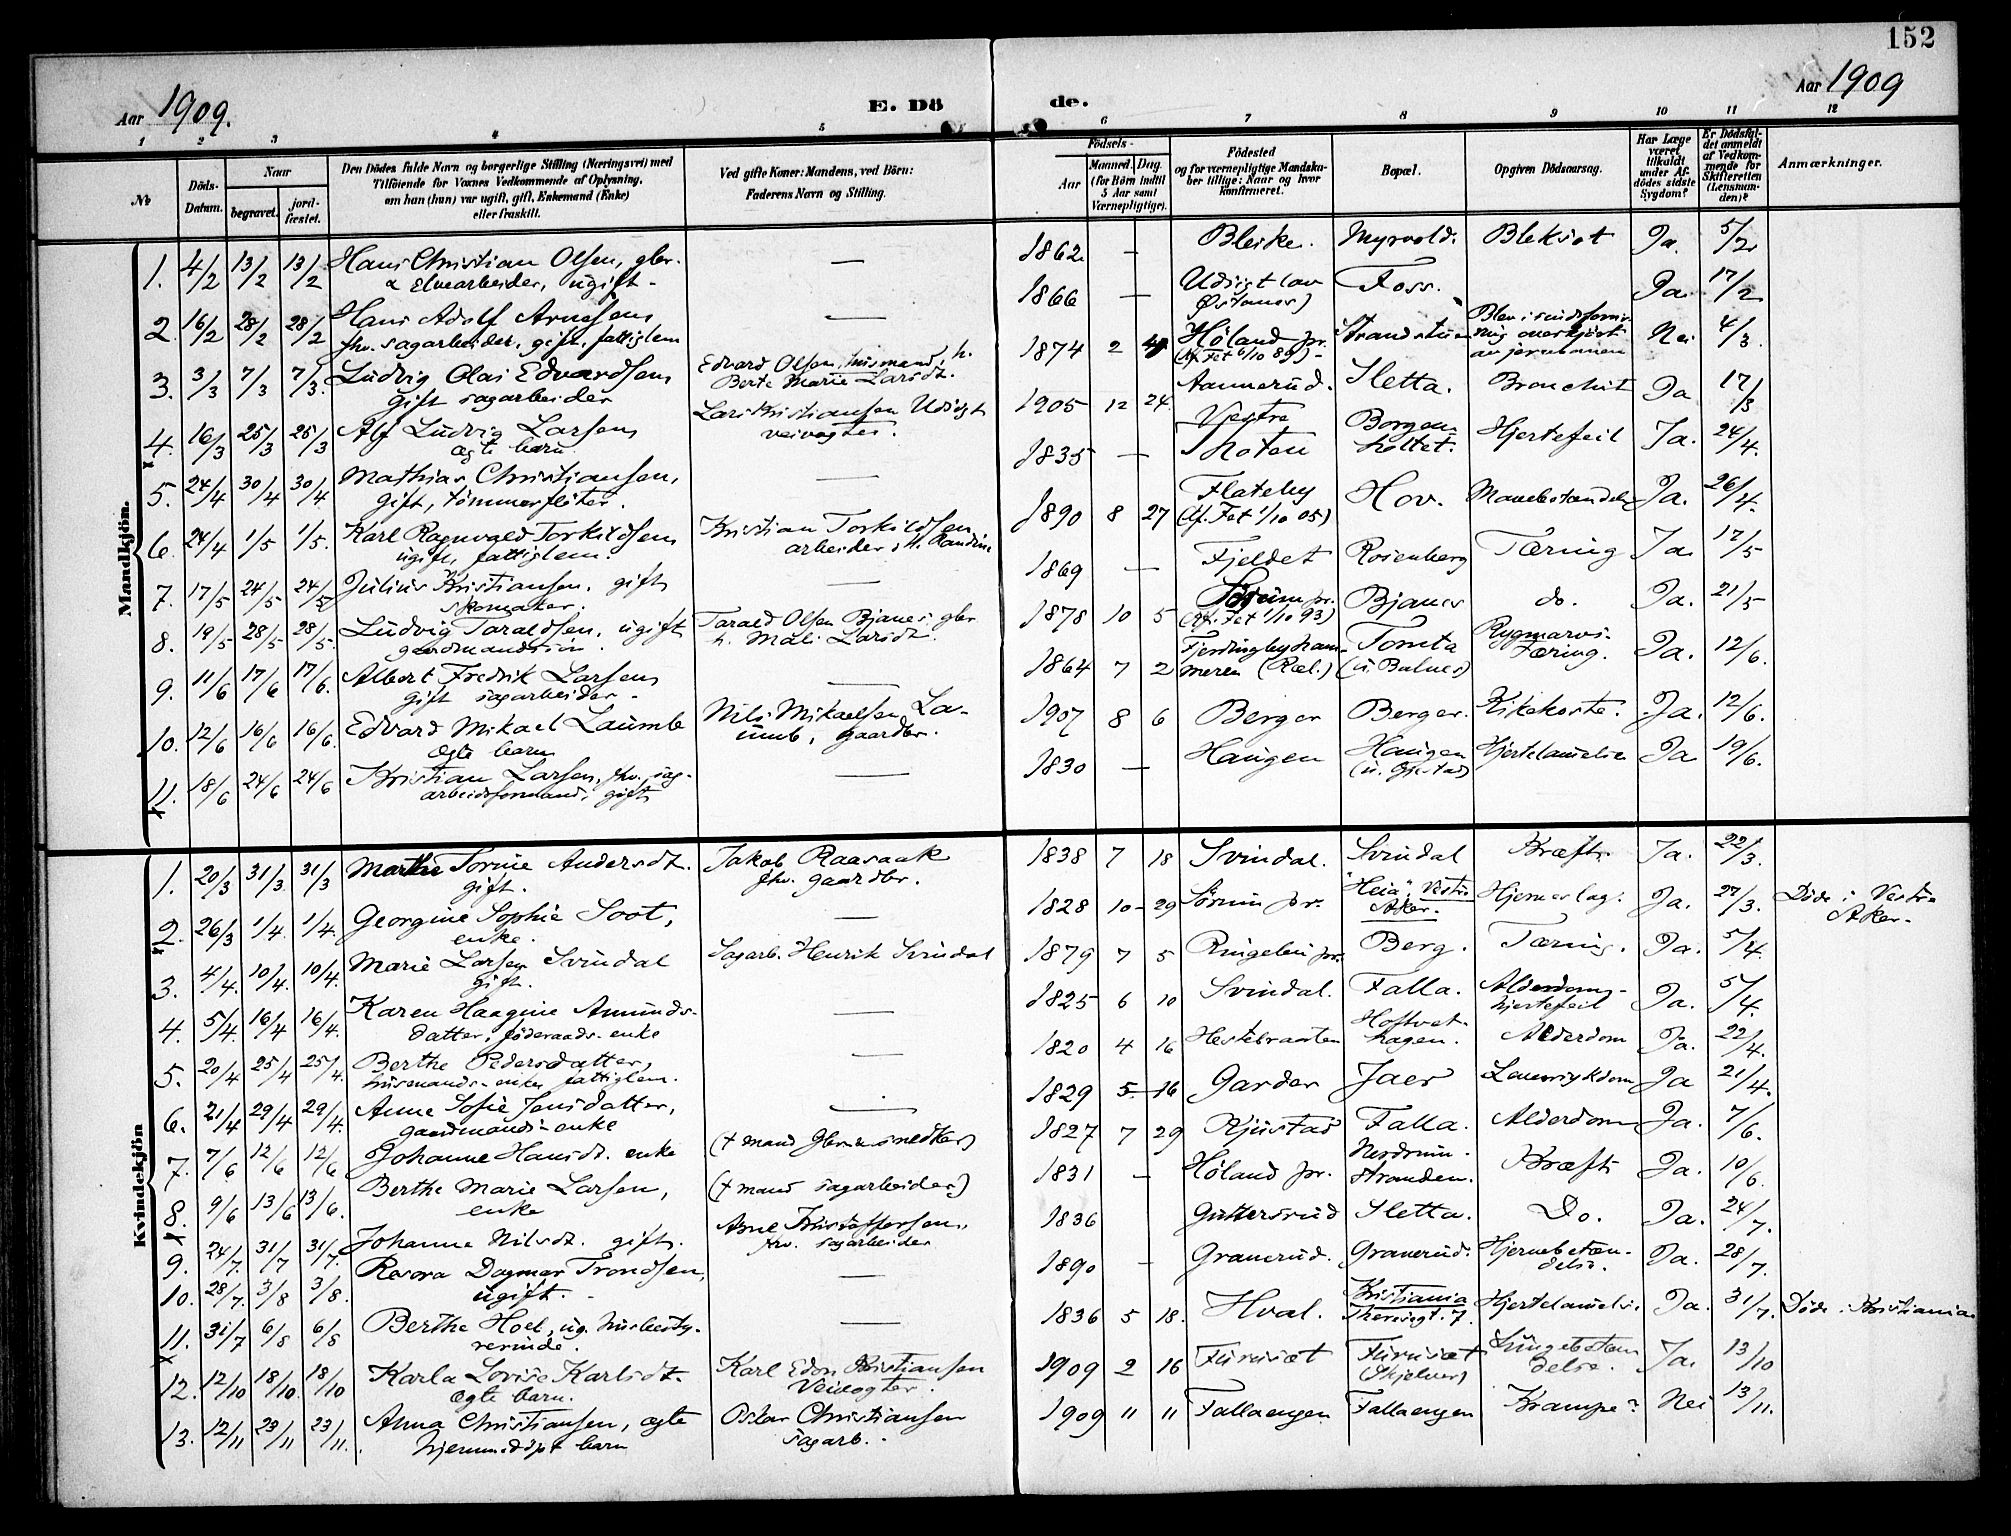 152
Aar 1909.
E. Dö
de.
Aar 1909
1 2 3 4 5 6 7 8 9 10 11 12
No
Döds-Datum.
Naar
begravet.
jordfæstet.
Den Dödes fulde Navn og borgerlige Stilling (Næringsvei) med
Tilföiende for Voxnes Vedkommende af Oplysning,
om han (hun) var ugift, gift, Enkemand (Enke)
eller fraskilt.
Ved gifte Koner: Mandens, ved Börn:
Faderens Navn og Stilling.
Födsels-
Aar
Maaned. Dag.
(for Börn indtil
5 Aar samt
Værnepligtige).
Födested
og for værnepligtige Mandska-
ber tillige: Naar og hvor
konfirmeret.
Bopæl.
Opgiven Dödsaarsag.
Har Læge
været
tilkaldt
under Af-
dödes sidste
Sygdom?
Er Dödsfal-
det anmeldt
af Vedkom-
mende for
Skifteretten
(Lensman-
den)?
Anmærkninger.
Mandkjön.
1. 4/2 13/2 13/2 Hans Christian Olsen, gbr.
& Elvearbeider, ugift - — 1862 — Bleike. Myrvold. Bleksot Ja. 5/2
2. 16/2 28/2 28/2 Hans Adolf Arnesen
fhv. sagarbeider, gift, fattiglem — 1866 — (Østanes) Foss. Ja 17/2
3. 3/3 7/3 7/3. Ludvig Olai Edvardsen
gift sagarbeider Edvard Olsen, husmand, h.
Berte Marie Larsdt. 1874 2 Høland pr.
(kf. Fet 6/10 89) - Strandstuen Blev i
av jernbanen Nei 4/3.
4. 16/3 25/3 25/3 Alf Ludvig Larsen
ægte barn Lars Kristiansen Udsigt
veivogter. 1905 12 24. Aamerud. Sletta. Bronchit Ja 17/3
5. 24/4 30/4 30/4 Mathias Christiansen,
gift, tømmerfløter. — 1835 — Vestre
Thoten Borgen-
holtet. Hjertefeil Ja. 24/4.
6. 24/4 1/5 1/5. Karl Ragnvald Torkildsen
ugift, fattiglem. Kristian Torkildsen
arbeider, h. Randine 1890 8 27 Flateby
(kf. Fet 1/10 05) Hov. Mavebetændelse Ja. 26/4.
7. 17/5 24/5 24/5 Julius Kristiansen. gift
skomaker. — 1869 — Fjeldet Rosenberg Tæring Ja. 17/5
8. 19/5 28/5 28/5. Ludvig Taraldsen. ugift
gaardmandssøn. Tarald Olsen Bjanes gbr
h. Mali Larsdt. 1878 10 5 Sørum pr.
(kf. Fet 1/10 93) Bjanes do. Ja. 21/5
9. 11/6 17/6 17/6. Albert Fredrik Larsen
gift sagarbeider - — 1864 7 2 Fjerdingbyham-
meren (Ræl.) Tomta
(u. Balnes) Rygmarvs-
Tæring. Ja. 12/6.
10. 12/6 16/6 16/6. Edvard Mikael Laumb
ægte barn Nils Mikaelsen La-
umb, gaardbr. 1907 8 6 Berger Berger. Kikhoste. Ja. 12/6.
11. 18/6 24/6 24/6 Kristian Larsen, fhv. sag-
arbeidsformand, gift — 1830 — Haugen Haugen Hjertelamelse Ja 19/6.
Kvindekjön
1. 20/3 31/3 31/3 Marthe Torine Andersdt.
gift. Jakob Raasaak
fhv. gaardbr. 1838 7 18 Svindal. Svindal Kræft. Ja. 22/3.
2. 26/3 1/4. 1/4. Georgine Sophie Soot,
enke. — 1828 10 - 29 Sørum pr. "Heia", Vestre
Aker. Hjerneslag. Ja. 27/3. Døde i Vestre
Aker.
3. 4/4. 10/4. 10/4. Marie Larsen Svindal
gift. Sagarb. Henrik Svindal 1879 7 5 Ringebu pr. Berg. Tæring. Ja. 5/4.
4. 5/4. 16/4 16/4. Karen Haagine Amunds-
datter, føderaads-enke — 1825 6 10 Svindal. Falla. Alderdoms-
hjertefeil Ja. 5/4.
5. 20/4 25/4 25/4. Berthe Pedersdatter,
husmands-enke, fattiglem. — 1820 4 16 Hestebraaten Hoftvet-
hagen. Alderdom Ja. 22/4.
6. 21/4 29/4 29/4. Anne Sofie Jensdatter,
gaardmands-enke — 1829 5 - 16 Garder Jaer Ja 21/4.
7. 7/6 12/6 12/6 Johanne Hansdt. enke († mand gbr. & snedker) 1827 7 29 Kjustad Falla. Alderdom Ja. 7/6.
8. 9/6 13/6 13/6. Berthe Marie Larsen,
enke († mand sagarbeider) 1831 — Høland pr. Nerdrum-
stranden. Kræft Ja. 10/6.
9. 24/7. 31/7 31/7. Johanne Nilsdt. gift. Arne Kristoffersen,
fhv. sagarbeider 1836 Guttersrud Sletta. Do. Ja. 24/7.
10. 28/7. 3/8 3/8. Rosora Dagmar Trondsen,
ugift. - — 1890 - Granerud. Granerud. Hjernebetæn-
delse. Ja. 28/7.
11. 31/7 6/8 6/8 Berthe Hoel, ug. husbesty-
rerinde. — 1836 5 18. Hval. Kristiania
Theresegt. 7. Hjertelamelse Ja. 31/7. Døde i Kristiania
12. 12/10 18/10. 18/10 Karla Lovise Karlsdt.
ægte barn. Karl Edon Kristiansen
Veivogter. 1909 2 16 Furuset Furuset
(Skjelver) Lungebetæn
delse. Ja. 13/10
13. 12/11 23/11 23/11. Anna Christiansen, ægte
hjemmedøpt barn Oskar Christiansen
sagarb. 1909 11 11 Fallaengen Fallaengen Krampe? Nei 13/11.